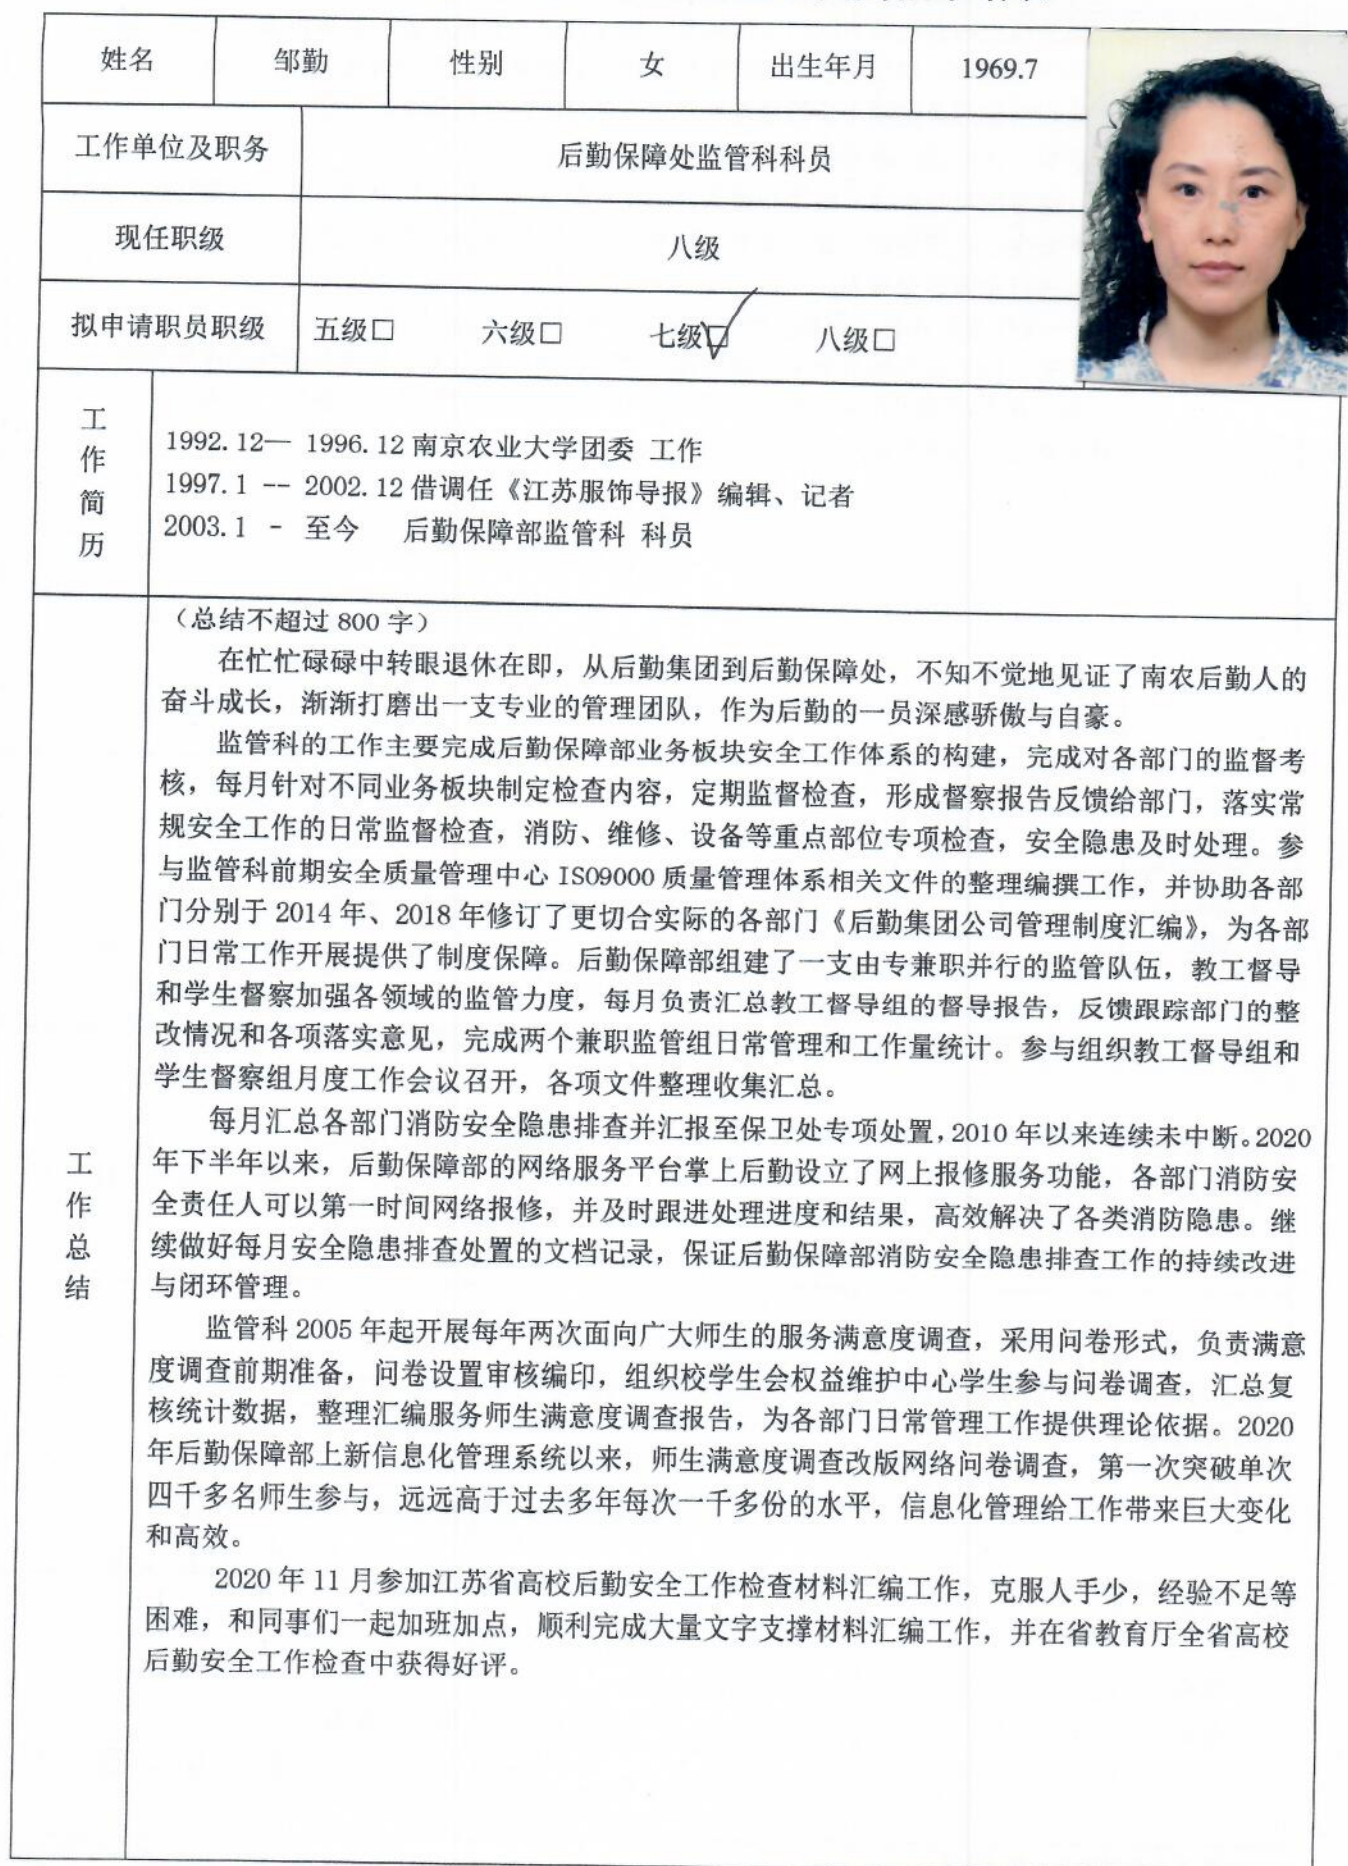 姓名 邹勤 性别 女 出生年月 1969.7
工作单位及职务 后勤保障处监管科科员
现任职级 八级
拟申请职员职级 五级□ 六级□ 七级□ 八级□
工作简历
1992.12— 1996.12 南京农业大学团委 工作
1997.1 -- 2002.12 借调任《江苏服饰导报》编辑、记者
2003.1 - 至今 后勤保障部监管科 科员
工作总结
（总结不超过 800 字）
在忙忙碌碌中转眼退休在即，从后勤集团到后勤保障处，不知不觉地见证了南农后勤人的
奋斗成长，渐渐打磨出一支专业的管理团队，作为后勤的一员深感骄傲与自豪。
监管科的工作主要完成后勤保障部业务板块安全工作体系的构建，完成对各部门的监督考
核，每月针对不同业务板块制定检查内容，定期监督检查，形成督察报告反馈给部门，落实常
规安全工作的日常监督检查，消防、维修、设备等重点部位专项检查，安全隐患及时处理。参
与监管科前期安全质量管理中心 ISO9000 质量管理体系相关文件的整理编撰工作，并协助各部
门分别于 2014 年、2018 年修订了更切合实际的各部门《后勤集团公司管理制度汇编》，为各部
门日常工作开展提供了制度保障。后勤保障部组建了一支由专兼职并行的监管队伍，教工督导
和学生督察加强各领域的监管力度，每月负责汇总教工督导组的督导报告，反馈跟踪部门的整
改情况和各项落实意见，完成两个兼职监管组日常管理和工作量统计。参与组织教工督导组和
学生督察组月度工作会议召开，各项文件整理收集汇总。
每月汇总各部门消防安全隐患排查并汇报至保卫处专项处置，2010 年以来连续未中断。2020
年下半年以来，后勤保障部的网络服务平台掌上后勤设立了网上报修服务功能，各部门消防安
全责任人可以第一时间网络报修，并及时跟进处理进度和结果，高效解决了各类消防隐患。继
续做好每月安全隐患排查处置的文档记录，保证后勤保障部消防安全隐患排查工作的持续改进
与闭环管理。
监管科 2005 年起开展每年两次面向广大师生的服务满意度调查，采用问卷形式，负责满意
度调查前期准备，问卷设置审核编印，组织校学生会权益维护中心学生参与问卷调查，汇总复
核统计数据，整理汇编服务师生满意度调查报告，为各部门日常管理工作提供理论依据。2020
年后勤保障部上新信息化管理系统以来，师生满意度调查改版网络问卷调查，第一次突破单次
四千多名师生参与，远远高于过去多年每次一千多份的水平，信息化管理给工作带来巨大变化
和高效。
2020 年 11 月参加江苏省高校后勤安全工作检查材料汇编工作，克服人手少，经验不足等
困难，和同事们一起加班加点，顺利完成大量文字支撑材料汇编工作，并在省教育厅全省高校
后勤安全工作检查中获得好评。